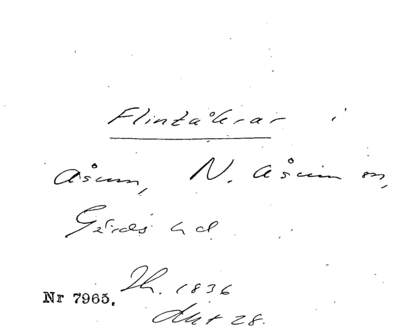 Flintåkrar i
Åsum, N. Åsum sn,
Gärds hd.
Nr 7965.
Th. 1836
Akt 28.